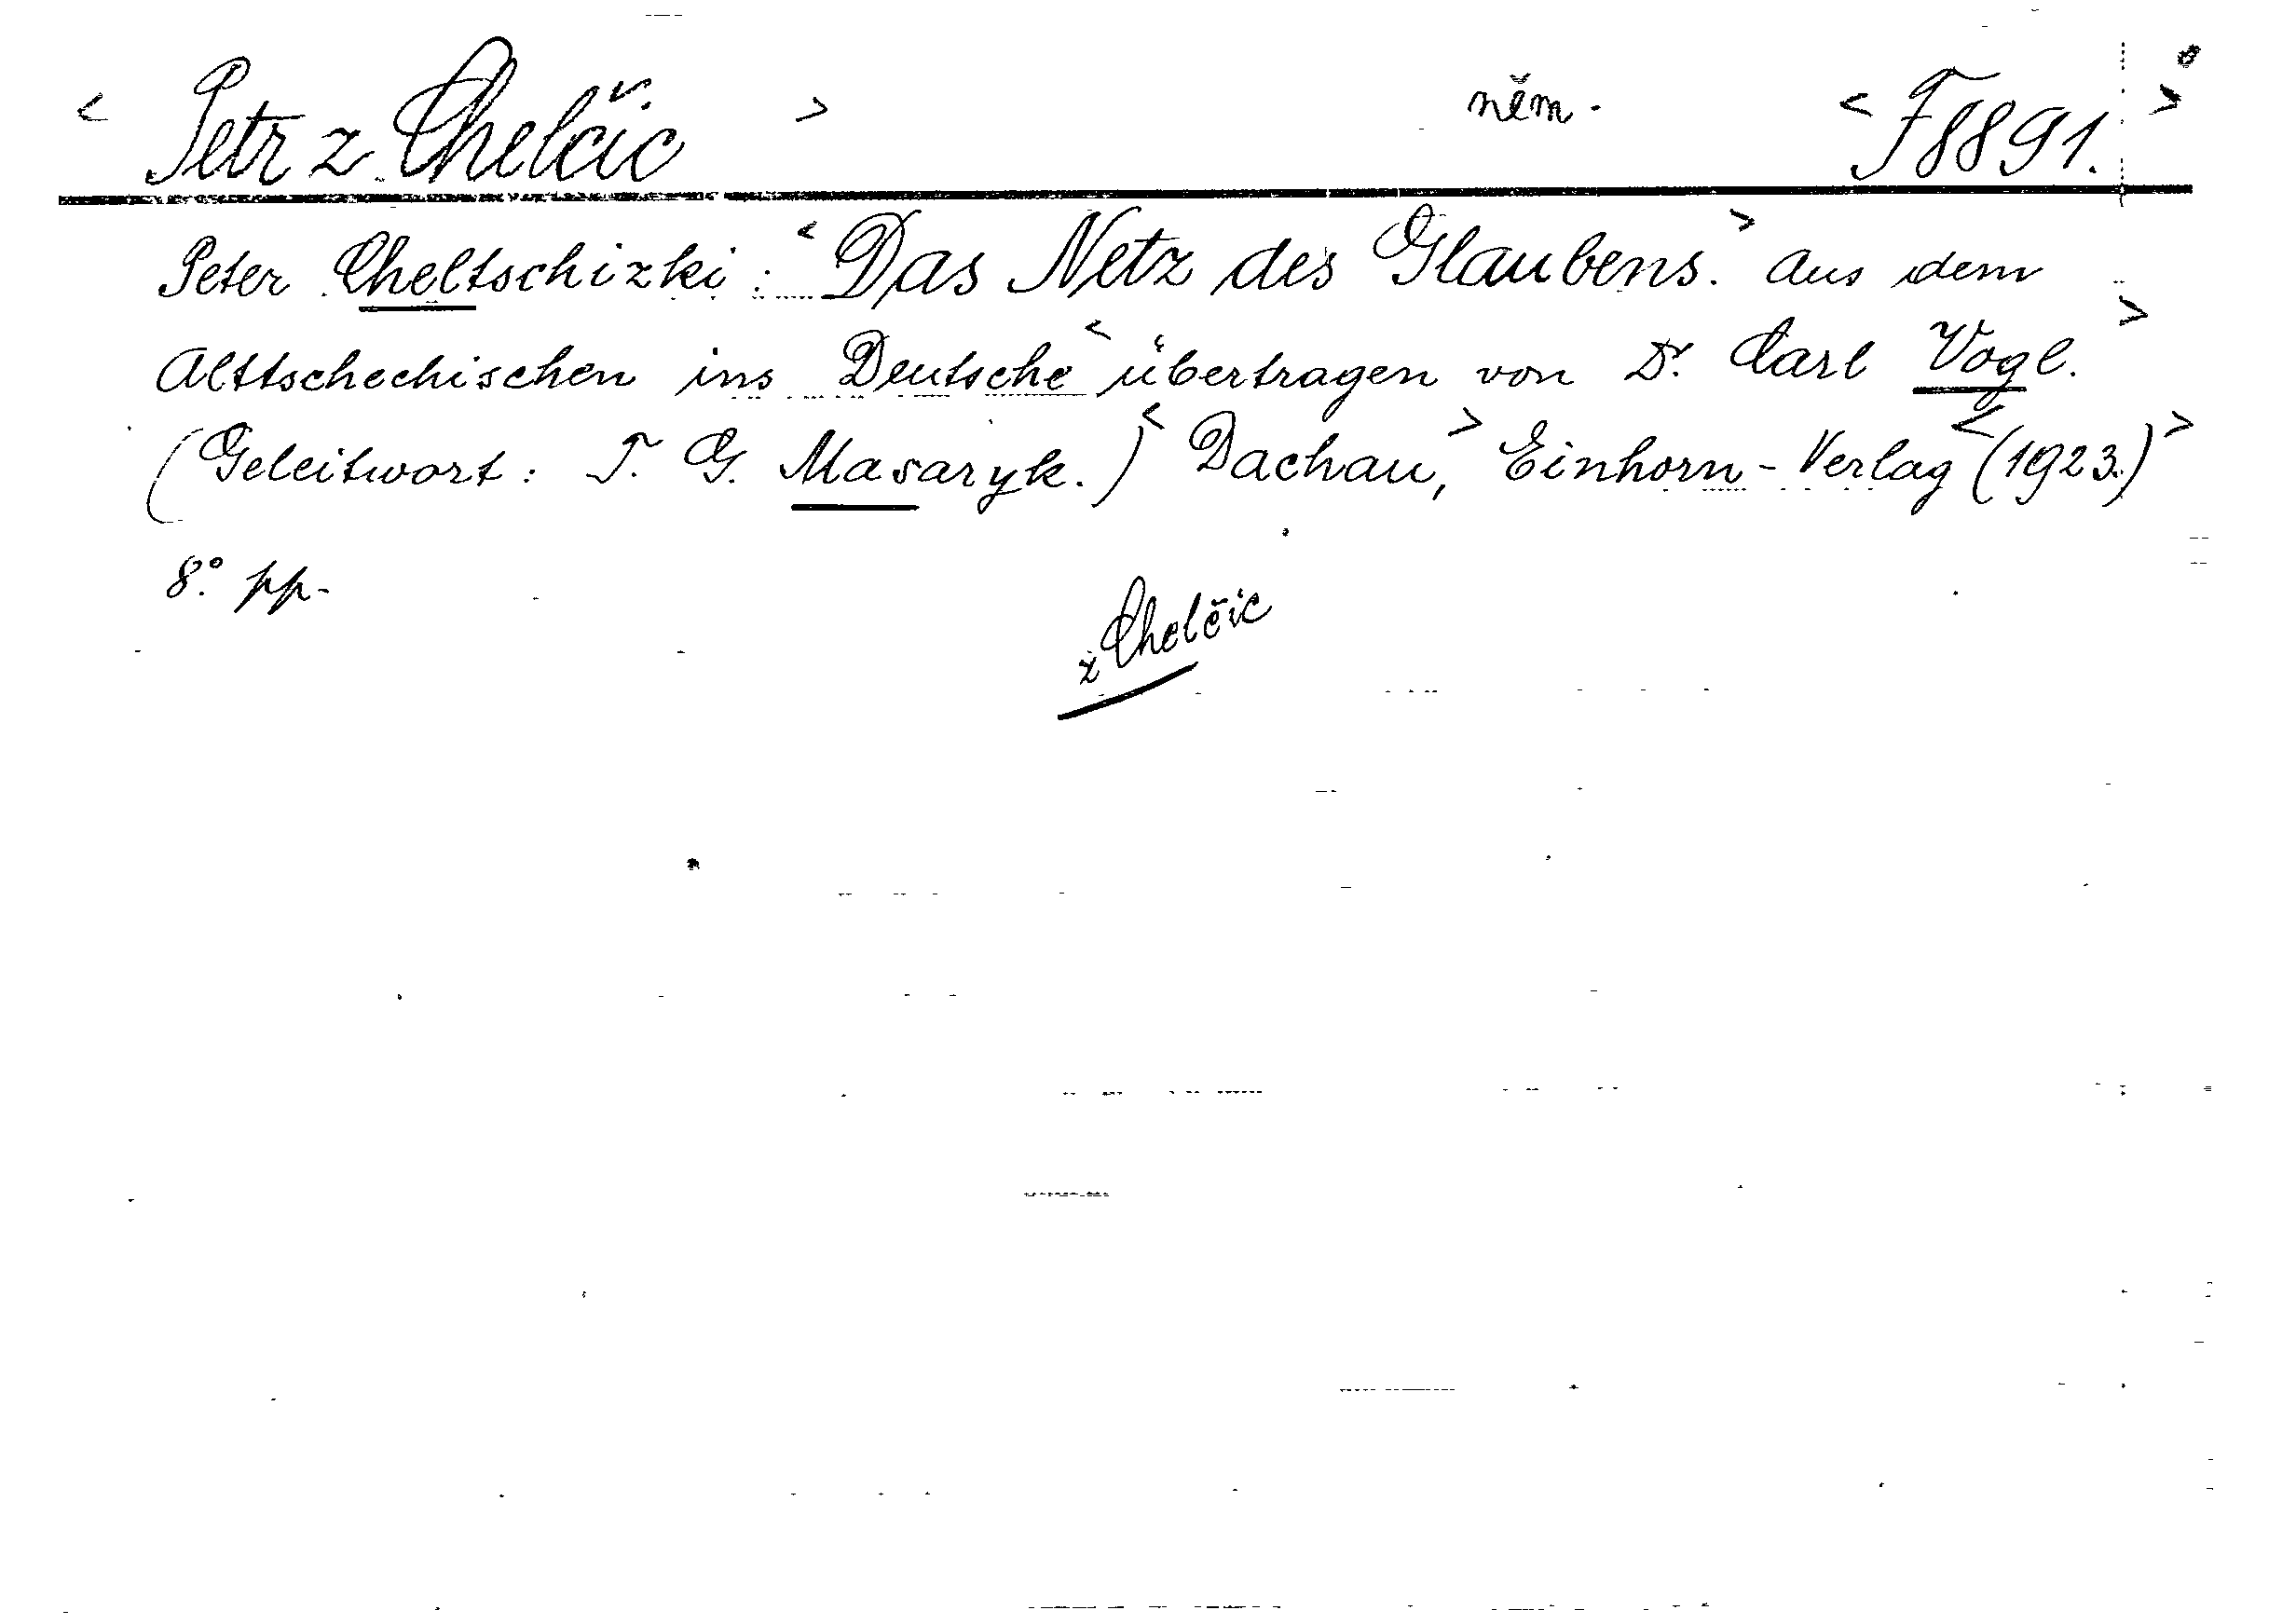 < Petr z Chelčic > něm. < F 8891. >
Peter Cheltschizki: < Das Netz des Glaubens. > Aus dem
Alttschechischen ins Deutsche < übertragen von Dr. Carl Vogl. >
(Geleitwort: T. G. Masaryk.) < Dachau, > Einhorn-Verlag < (1923.) >
8.° pp.
z Chelčic